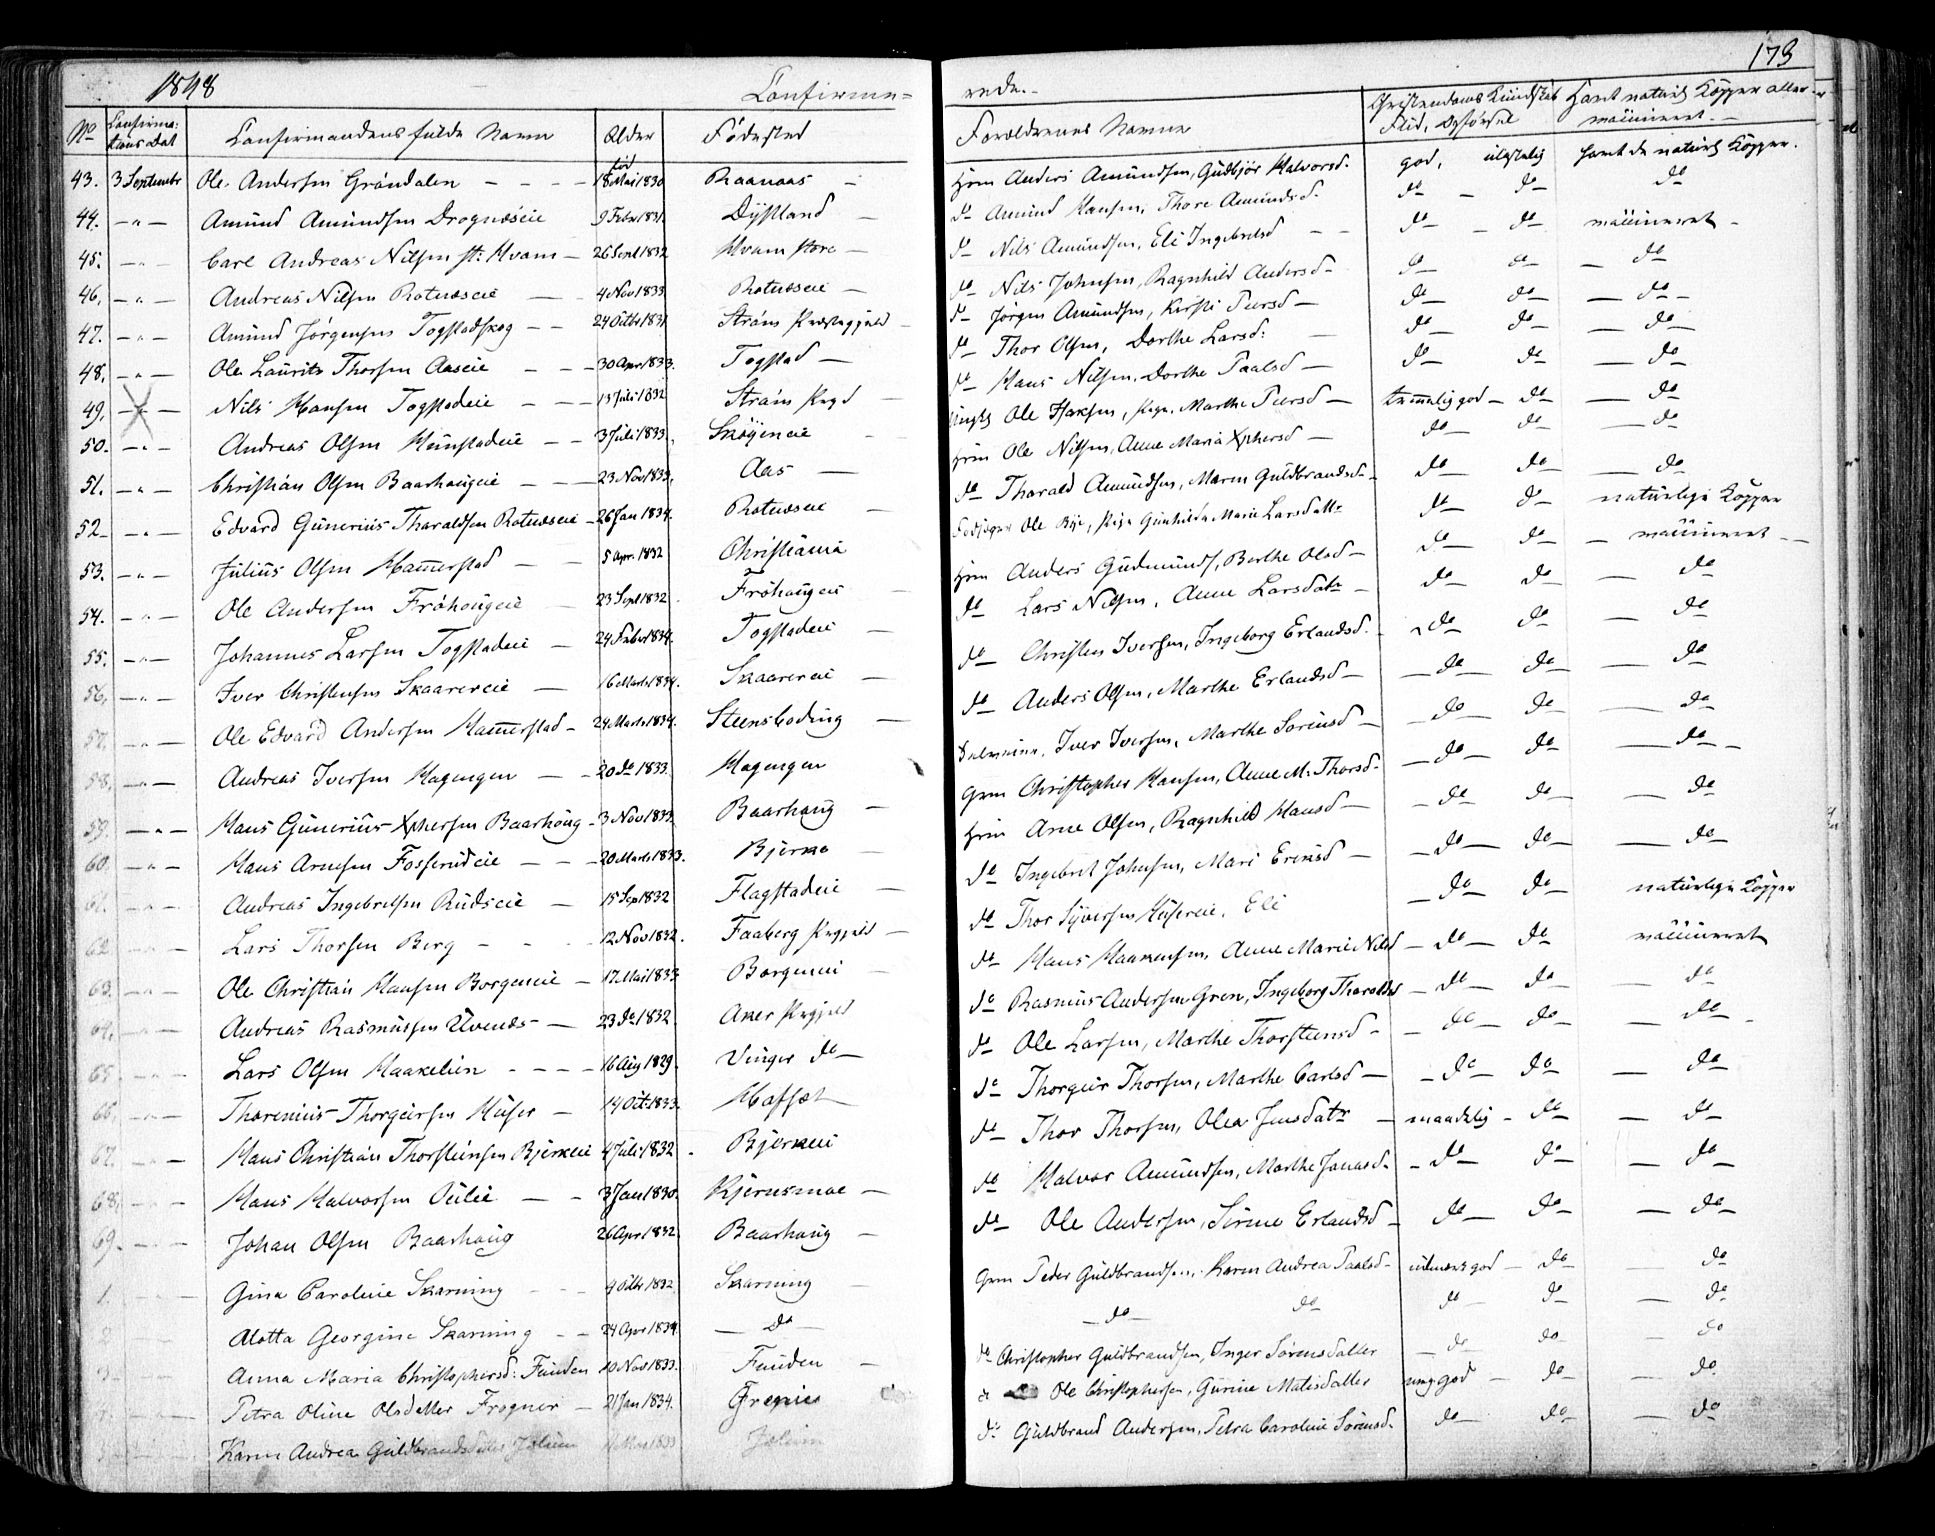 1848 Confirme= rede.- 173
No Confirma: tions Dat Confirmandens fulde Navn Alder Fødested Forældrenes Navne Christendoms Kundskab Flid, Opførsel Havt naturl Kopper eller vaccineret.-
43. 3 September Ole Andersen Grøndalen - - - 18 Mai 1830 Raanaas - Hm Anders Amundsen, Gudbjør Halvorsd. god, ulastelig havt de naturl Kopper.
44. - " - Amund Amundsen Drognæseie 9 Febr 1831. Dystland - do Amund Hansen, Thore Amundsd. do - do do
45. - " - Carl Andreas Nilsen st: Hvam - 26 Sept 1832 Hvam store - do Nils Amundsen, Eli Ingebretsd - - do - do vaccineret -
46. - " - Andreas Nilsen Rotnæseie - - 4 Nov 1833 Rotnæseie - do Nils Johnsen, Ragnhild Andersd - do do - do
47. - " - Amund Jørgensen Togstadskog - - 24 Octbr 1831 Strøms Præstegjeld - do Jørgen Amundsen, Kirsti Peersd - do do - do -
48. - " - Ole Lauritz Thorsen Aaseie - - - 30 Apr 1833. Togstad - do Thor Olsen, Dorthe Larsd: do do - do
49. - " - Nils Hansen Togstadeie - - - 13 Juli 1832 Strøms Prgd - do Hans Nilsen, Dorthe Paalsd - do do - do
50. - " - Andreas Olsen Hunstadeie - - 3 Juli 1833. Skøyeneie - Ole Haksen, Pige Marthe Peersd - temmelig god - do - do
51. - " - Christian Olsen Baarhaugeie - - - 23 Nov 1833. Aas - Hm Ole Nilsen, Anne Maria Xphersd - do do - do
52 - " - Edvard Gunerius Tharaldsen Rotnæseie - 26 Jan 1834. Rotnæseie - do Tharald Amundsen, Maren Guldbrandsd - do do - do
53. - " - Julius Olsen Hammerstad - - 5 Apr. 1832 Christiania Ole Bye, Pige Gunhilda Marie Larsdatr do do naturlige Kopper
54. - " - Ole Andersen Frøhougeie - 23 Sept 1832. Frøhaugeie - Hm Anders Gudmunds, Berthe Olsd - do do - vaccineret - -
55. - " - Johannes Larsen Togstadeie - 24 Febr 1834. Togstadeie - do Lars Nilsen, Anne Larsdatr - do do - do
56. - " - Iver Christensen Skaarereie - 16 Marts 1834. Skaarereie - do Christen Iversen, Ingeborg Erlandsd. - do do - do
57. - " - Ole Edvard Andersen Hammerstad - 24 Marts 1834. Steensboding - do Anders Olsen, Marthe Erlandsd - - do - do - do
58. - " - Andreas Iversen Hagengen - - 20 do 1833. Hagengen Iver Iversen, Marthe Sørensd - - do - do - do
59. - " - Hans Gunerius Xphersen Baarhoug - 3 Nov 1833. Baarhaug - Gm Christopher Hansen, Anne M. Thorsd. - do - do - do -
60. - " - Hans Arnesen Fosserudeie - - - 20 Marts 1833. Bjerke - Hm Arne Olsen, Ragnhild Hansd - - do do - do
61. - " - Andreas Ingebretsen Rudseie - - 15 Sep 1832 Flagstadeie - do Ingebret Johnsen, Mari Ericsd - - do - do - do
62 - " - Lars Thorsen Berg - - - 12 Nov 1832. Faaberg Prgjeld - do Thor Syversen Husereie, Eli - do do - naturlige Kopper
63. - " - Ole Christian Hansen Borgeneie - 17 Mai 1833 Borgeneie - do Hans Haakensen, Anne Marie Nilsd - do - do vaccineret
64. - " - Andreas Rasmussen Uvends - - 23 do 1832. Aker Prgjeld do Rasmus Andersen Gren, Ingeborg Tharaldsd - do - do - do
65. - " - Lars Olsen Haakelien - - - - 16 Aug 1829. Vinger do - do Ole Larsen, Marthe Thorsteensd - - do - do - do -
66. - " - Thorenius Thorgeirsen Huser - 14 Oct 1833. Hofset - do Thorgeir Thorsen, Marthe Carlsd - - do do - do
67. - " - Hans Christian Thorsteinsen Bjerkeie 4 Juli 1832. Bjerkeie do Thor Thorsen, Olea Jensdatr - maadelig - do - do
68. - " - Hans Halvorsen Oulie - - 3 Jan 1830. Kjernsmoe - do Halvor Amundsen, Marthe Jonasd. - do - do - do
69. - " - Johan Olsen Baarhaug 26 Apr 1832. Baarhaug - do Ole Andersen, Sirine Erlandsd - do - do - do
1. - Gina Caroline Skarning - - - 4 Octbr 1832. Skarning - Gm Peder Guldbrandsen, Karen Andrea Paalsd - udmærk god - do - do
2 - Alotta Georgine Skarning - - 24 Apr 1834 - do - - do - do do - do - do
3 - Anna Maria Christophersd: Funden 10 Nov 1833. Funden - do Christopher Guldbrandsen, Inger Sørensdatter - do do - do
4. - Petra Oline Olsdatter Frogner - 21 Jan 1834. Grenie do Ole Christophersen, Gurine Matisdatter meg god - do - do
5 - Karen Andrea Guldbrandsdatter Jølum 1833 Jølum do Guldbrand Andersen, Petra Caroline Sørensd. do - do - do